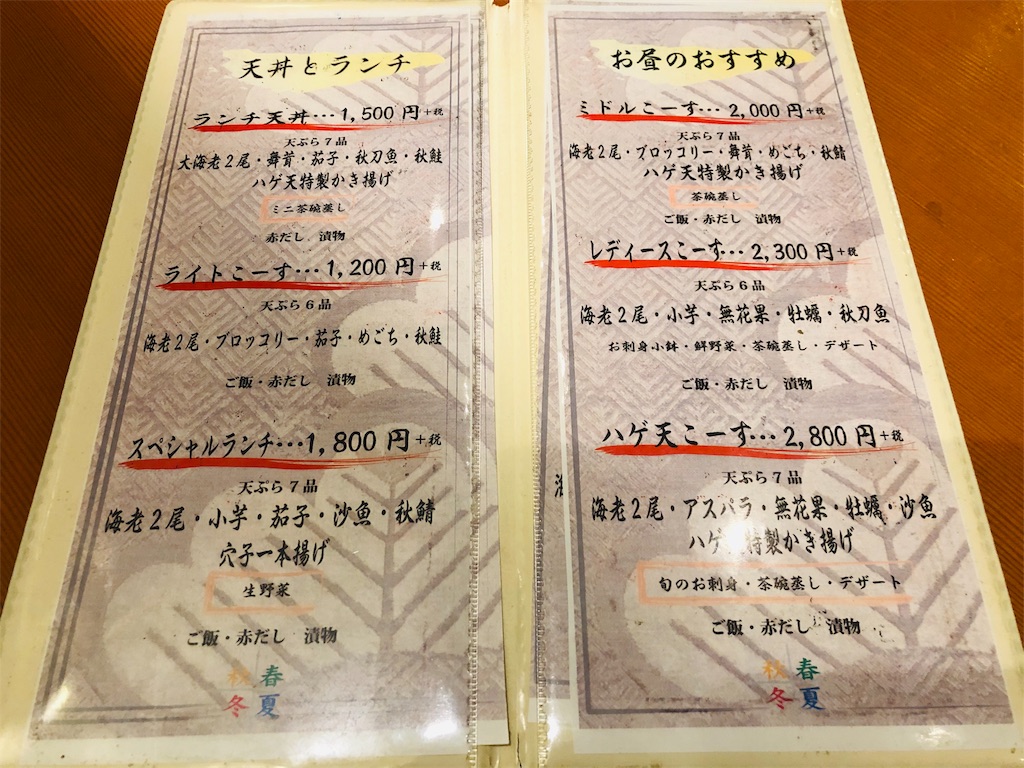 天丼とランチ
ランチ天丼…1,500円+税
天ぷら7品
大海老2尾・舞茸・茄子・秋刀魚・秋鮭
ハゲ天特製かき揚げ
ミニ茶碗蒸し
赤だし 漬物
ライトこーす…1,200円+税
天ぷら6品
海老2尾・ブロッコリー・茄子・めごち・秋鮭
ご飯・赤だし 漬物
スペシャルランチ…1,800円+税
天ぷら7品
海老2尾・小芋・茄子・沙魚・秋鯖
穴子一本揚げ
生野菜
ご飯・赤だし 漬物
秋春
冬夏
お昼のおすすめ
ミドルこーす…2,000円+税
天ぷら7品
海老2尾・ブロッコリー・舞茸・めごち・秋鯖
ハゲ天特製かき揚げ
茶碗蒸し
ご飯・赤だし 漬物
レディースこーす…2,300円+税
天ぷら6品
海老2尾・小芋・無花果・牡蠣・秋刀魚
お刺身小鉢・鮮野菜・茶碗蒸し・デザート
ご飯・赤だし 漬物
ハゲ天こーす…2,800円+税
天ぷら7品
海老2尾・アスパラ・無花果・牡蠣・沙魚
ハゲ天特製かき揚げ
旬のお刺身・茶碗蒸し・デザート
ご飯・赤だし 漬物
秋春
冬夏